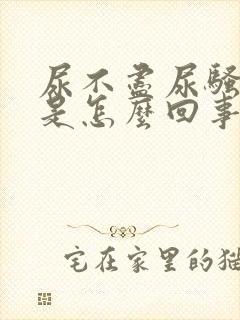 尿不盡尿騷
是怎麼回事
宅在家里的猫